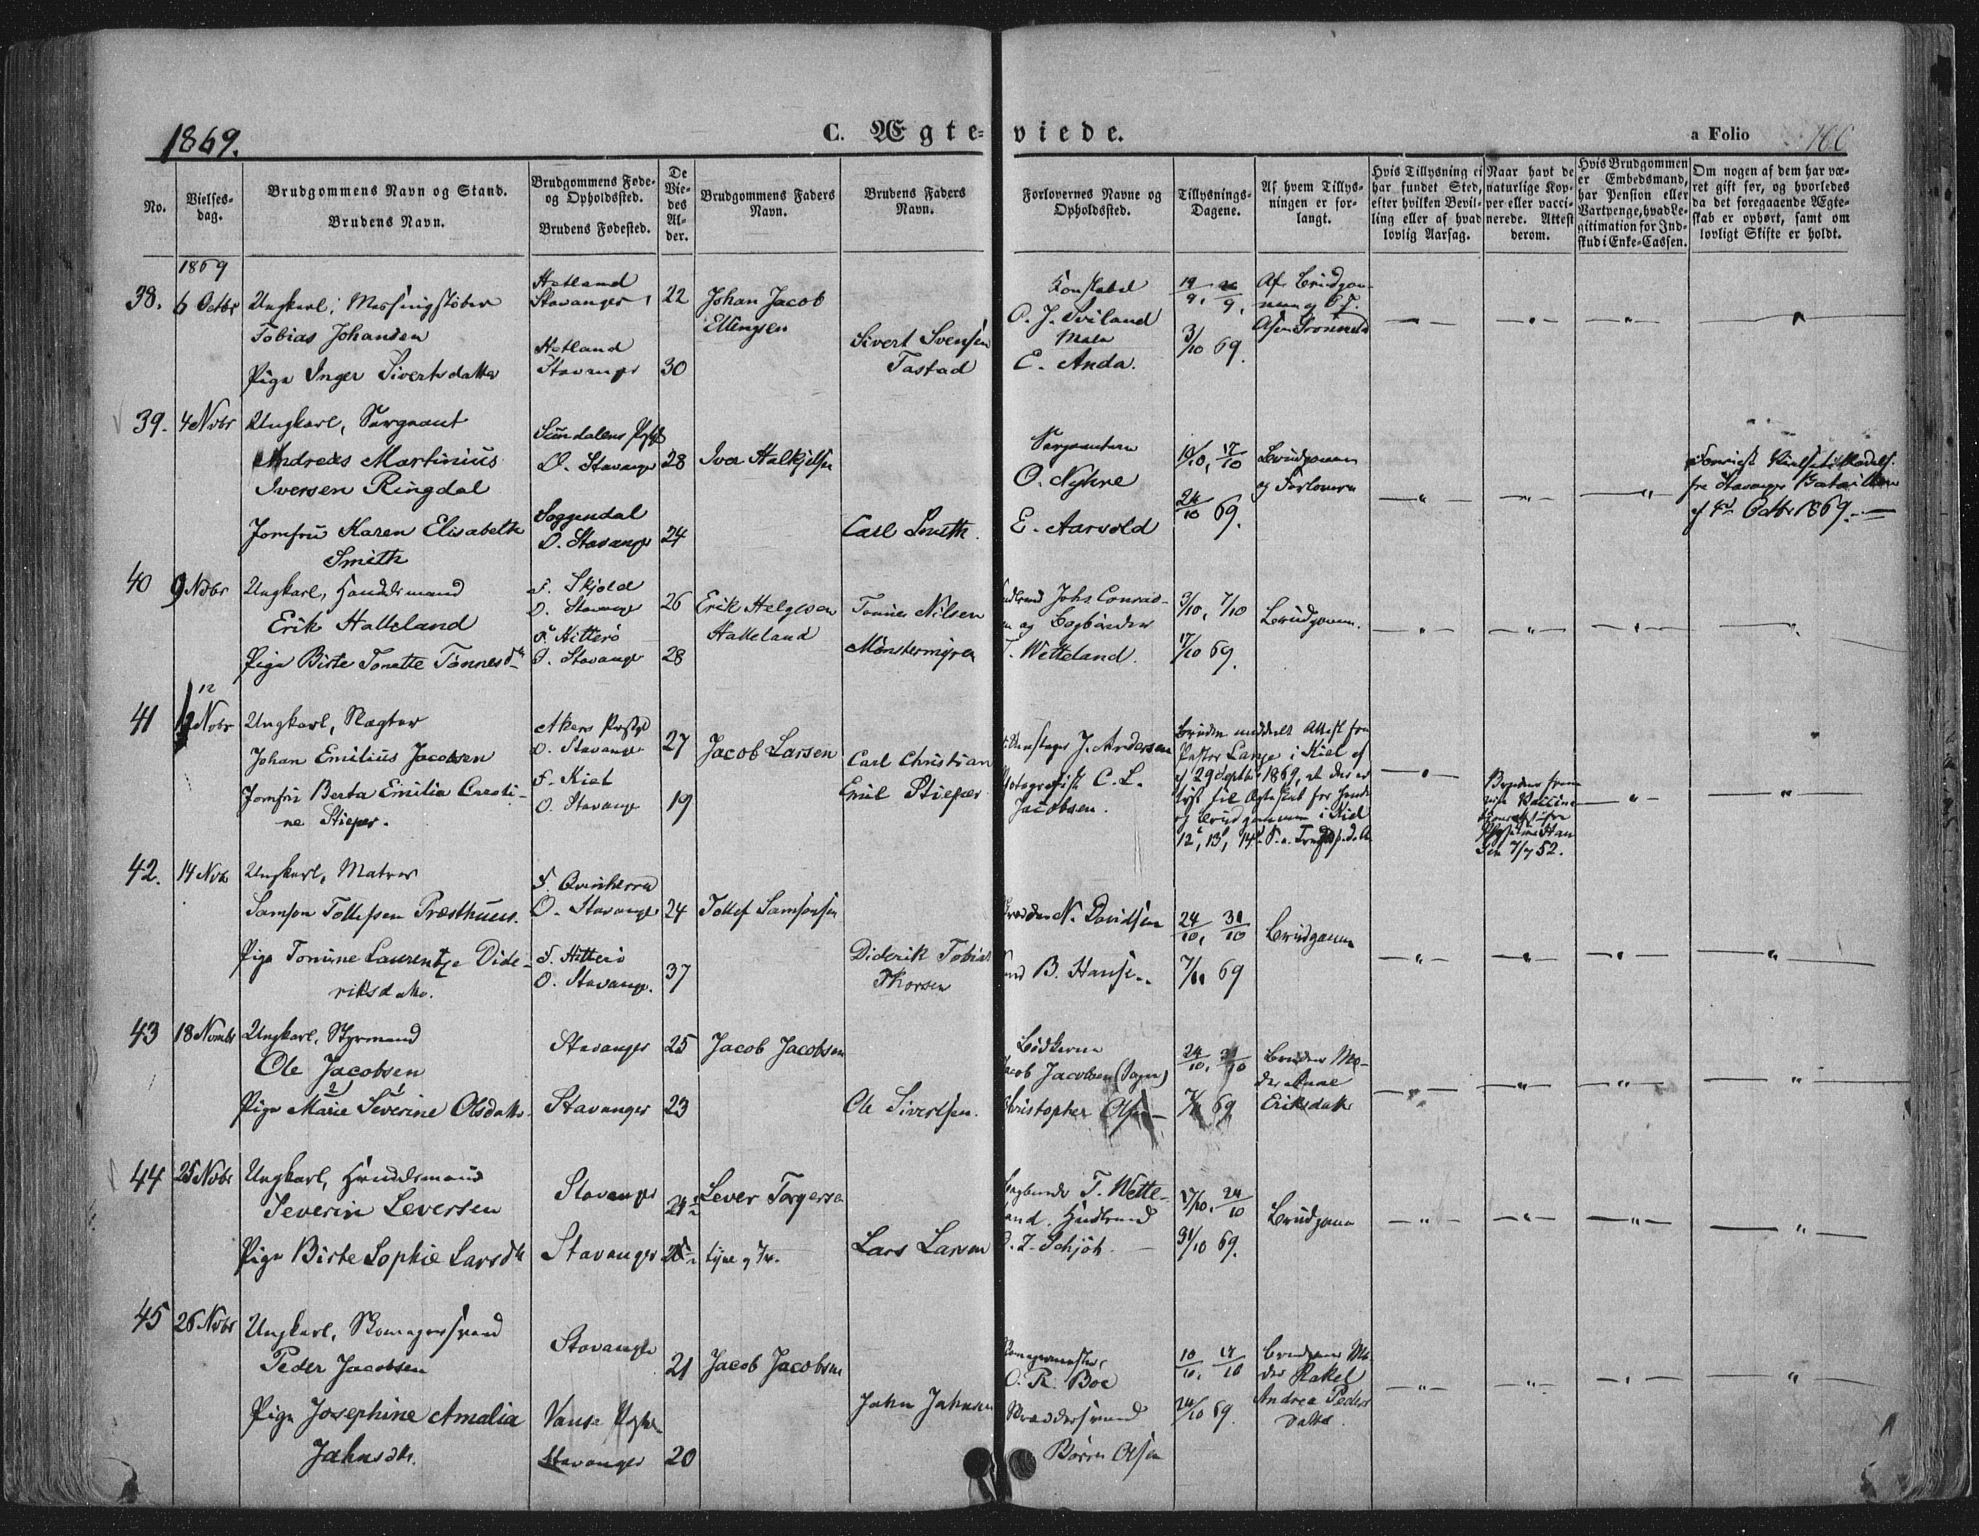 1869.
C. Ægte-
viede.
a Folio
No.
Vielses-
dag.
Brudgommens Navn og Stand.
Brudens Navn.
Brudgommens Føde-
og Opholdssted.
Brudens Fødested.
De
Vie-
des
Al-
der.
Brudgommens Faders
Navn.
Brudens Faders
Navn.
Forlovernes Navne og
Opholdssted.
Tillysnings-
Dagene.
Af hvem Tillys-
ningen er for-
langt.
Hvis Tillysning ei
har fundet Sted,
efter hvilken Bevil-
ling eller af hvad
lovlig Aarsag.
Naar havt de
naturlige Kop-
per eller vacci-
nerede. Attest
derom.
Hvis Brudgommen
er Embedsmand,
har Pension eller
Vartpenge, hvad Le-
gitimation for Ind-
skud i Enke-Cassen.
Om nogen af dem har væ-
ret gift før, og hvorledes
da det foregaaende Ægte-
skab er ophørt, samt om
lovligt Skifte er holdt.
1869
38. 6 Octbr
Ungkarl, Messingstøber
Tobias Johansen
Pige Inger Sivertsdatter
Hetland
Stavanger
Hetland
Stavanger
22
30
Johan Jacob
Ellingsen
Sivert Svensen
Tastad
Konstabel
O. J. Sviland
Maler
E. Anda.
19/9, 26/9,
3/10 69.
Af Brudgom-
men og
39. 4 Nobr
Ungkarl, Sergeant
Andreas Martinius
Iversen Ringdal
Jomfru Karen Elisabeth
Smith
Sundalens Pgjd
O. Stavanger
Soggendal
O. Stavanger
28
24
Iver
Carl Smith.
Sergeanterne
O. Nyhre
E. Aarvold
10/10, 17/10
24/10 69.
Brudgommen
og Forloverne
fra Stavanger Bataillon
Octbr 1869.
40 9 Nobr
Ungkarl, Handelsmand
Erik Halleland
Pige Birte Tonette Tønnesd.
F. Skjold
O. Stavanger
F. Hitterø
O. Stavanger
26
28
Erik Helgesen
Halleland
Tønnes Nilsen
Mønstermyren
Johs Conrad-
og Bogbinder
T. Wetteland.
3/10, 7/10
17/10 69.
Brudgommen.
41 12 Nobr
12
Ungkarl, Slagter
Johan Emilius Jacobsen
Jomfru Berta Emilia Cresti-
ne Stieper.
Akers Prstgd
O. Stavanger
F. Kiel
O. Stavanger
27
19
Jacob Larsen
Carl Christian
Emil Stieper
J. Andersen
Photografist C. L.
Jacobsen.
Bruden meddelt Attest fra
Pastor Lange i Kiel af
29 Septbr 1869, at der er
lyst til Ægteskab for hende
og Brudgommen i Kiel
12, 13, 14
7/7 52.
42. 14 Nobr
Ungkarl, Matros
Samson Tollefsen Præsthuus.
Pige Tonnine Laurentze Dide-
riksdatter.
F. Qvinherred
O. Stavanger
F. Hitterø
O. Stavanger.
24
37
Tollef Samsonsen
Diderik Tobias
Thorsen
N. Davidsen
B. Hansen
24/10, 31/10
7/11 69
Brudgommen
43 18 Novmbr
Ungkarl, Styrmand
Ole Jacobsen
Pige Marie Severine Olsdatter
Stavanger
Stavanger
25
23
Jacob Jacobsen
Ole Sivertsen.
Bødkerne
Jacob Jacobsen
Christopher Olsen
24/10, 31/10
7/11 69
Brudens Mo-
der Anne
Eriksdatter
44 25 Nobr
Ungkarl, Handelsmand
Severin Leversen
Pige Birte Sophie Larsdtr
Stavanger
Stavanger
Lever Torgersen
Lars Larsen
Bogbinder T. Wette-
land. Handelsmand
Schjøt.
17/10, 24/10
31/10 69.
Brudgommen
45 26 Nobr
Ungkarl, Skomagersvend
Peder Jacobsen
Pige Josephine Amalia
Jahnsdtr.
Stavanger
Vanse
Stavanger
21
20
Jacob Jacobsen
Jahn Jahnsen
Skomagermester
O. R. Boe
Skræddersvend
Børre Olsen
10/10, 17/10
24/10 69.
Brudgommens Mo-
der Rakel
Andrea Peders
datter.